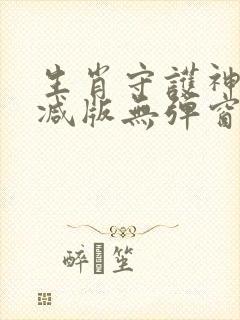 生肖守護神
減版無彈窗
醉 坐